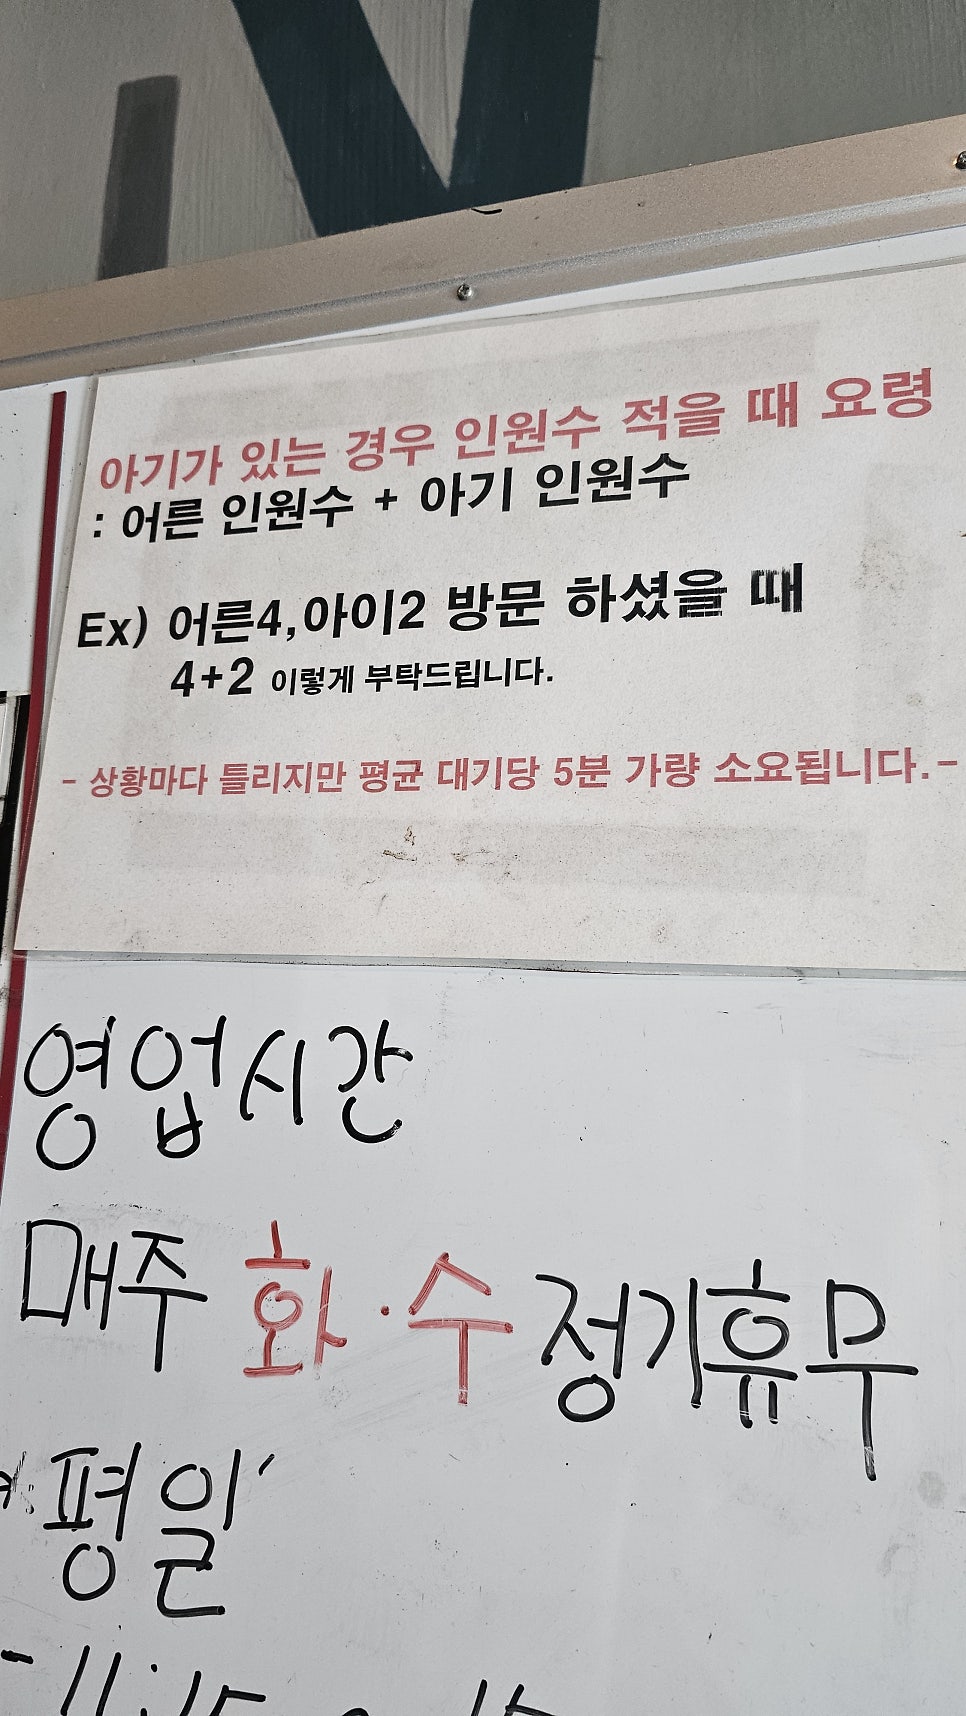 아기가 있는 경우 인원수 적을 때 요령
: 어른 인원수 + 아기 인원수
Ex) 어른4,아이2 방문 하셨을 때
4+2 이렇게 부탁드립니다.
- 상황마다 틀리지만 평균 대기당 5분 가량 소요됩니다.-
영업시간
매주 화·수 정기휴무
평일